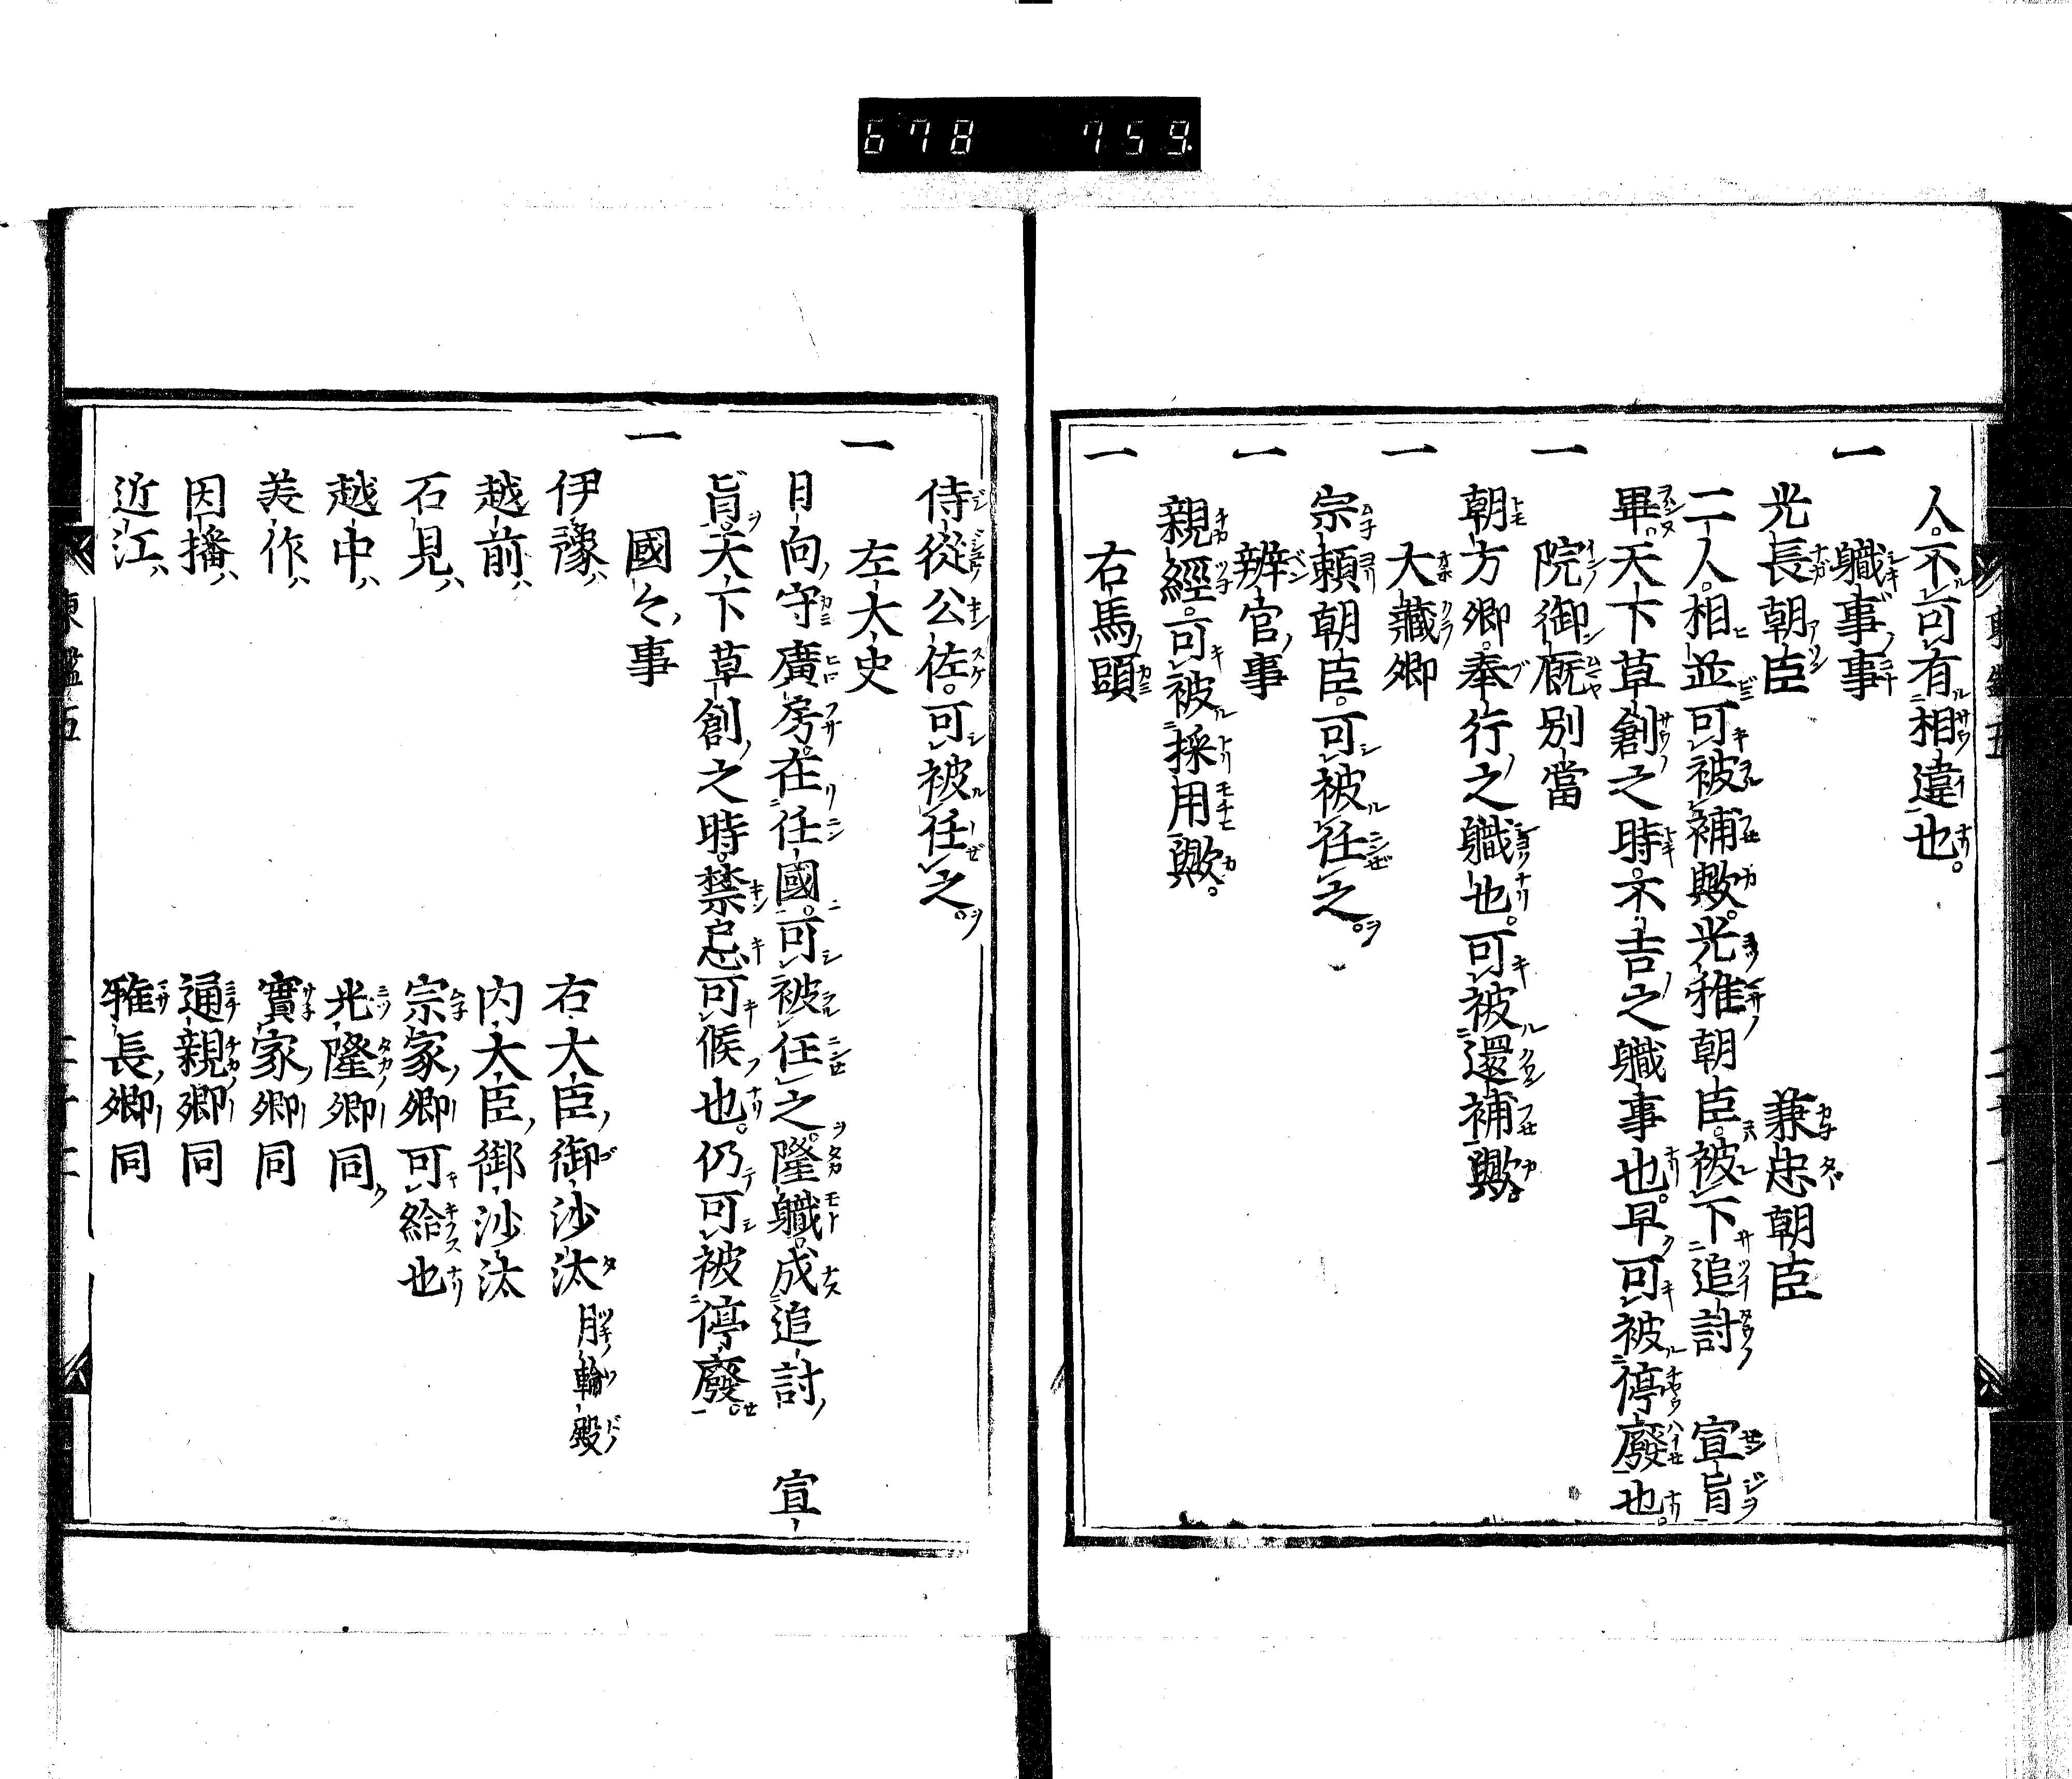 678 759.
人。不可有相違也。
一 職事事
光長朝臣 兼忠朝臣
二人。相並可被補歟。光雅朝臣。被下追討 宣旨
畢。天下草創之時。不吉之職事也。早可被停廢也。
一 院御厩別當
朝方卿。奉行之職也。可被還補歟。
一 大藏卿
宗頼朝臣。可被任之。
一 辨官事
親經。可被採用歟。
一 右馬頭
侍從公佐。可被任之。
一 左大史
日向守廣房。在任國。可被任之。隆職。成追討 宣
旨。天下草創之時。禁忌可候也。仍可被停廢。
一 國々事
伊豫 右大臣御沙汰 月輪殿
越前 内大臣御沙汰
石見 宗家卿可給也
越中 光隆卿同
美作 實家卿同
因播 通親卿同
近江 雅長卿同